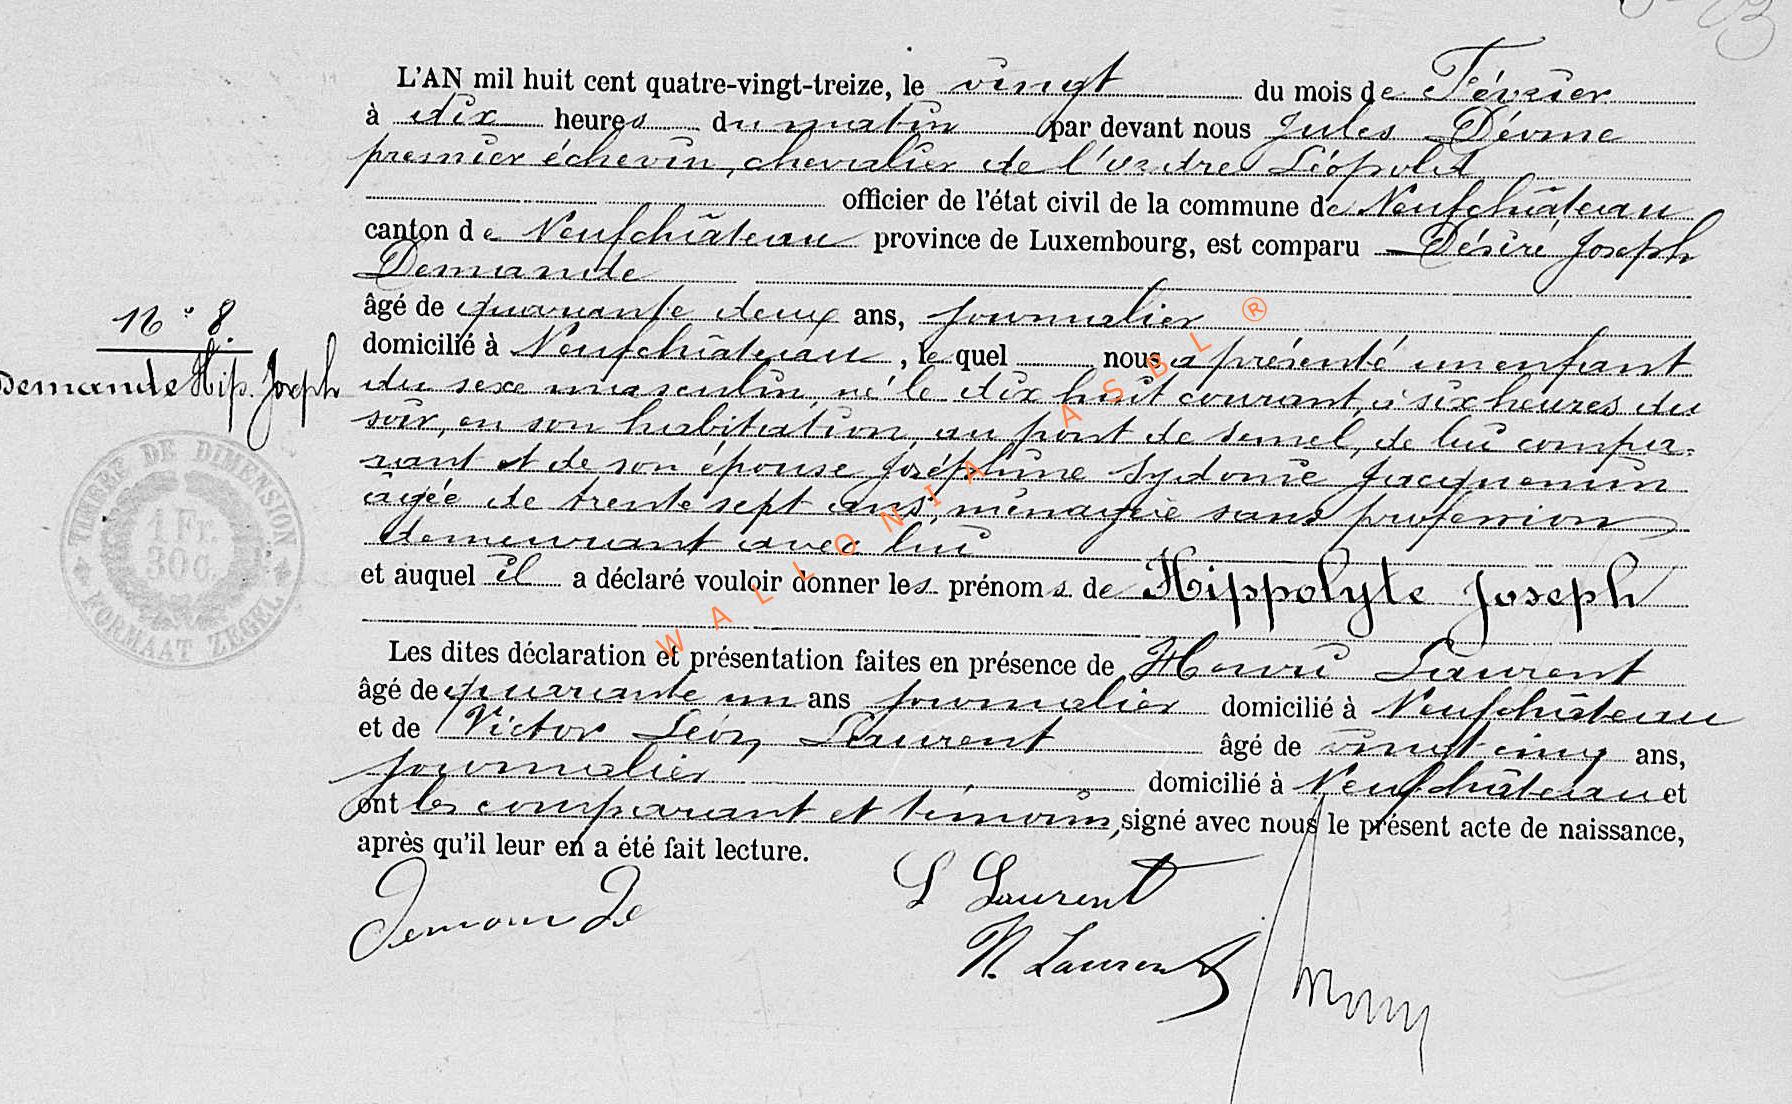 L'AN mil huit cent quatre-vingt-treize, le vingt du mois de Février
à dix heures du matin par devant nous Jules
premier échevin, chevalier de l'ordre Léopold
officier de l'état civil de la commune de Neufchâteau
canton de Neufchâteau province de Luxembourg, est comparu Désiré Joseph
Demande
âgé de quarante deux ans, journalier
N° 8.
Demande Hip. Joseph
domicilié à Neufchâteau, le quel nous a présenté un enfant
du sexe masculin, né le dix huit courant, à six heures du
soir, en son habitation, au pont de Semel, de lui compa-
rant et de son épouse Joséphine Sydonie Jacquemin
âgée de trente sept ans, ménagère sans profession
demeurant avec lui
et auquel il a déclaré vouloir donner les prénoms de Hippolyte Joseph
Les dites déclaration et présentation faites en présence de Henri Laurent
âgé de quarante un ans journalier domicilié à Neufchâteau
et de Victor Léon Laurent âgé de vingt cinq ans,
journalier domicilié à Neufchâteau et
ont les comparant et témoins, signé avec nous le présent acte de naissance,
après qu'il leur en a été fait lecture.
Demande
L Laurent
H. Laurent
TIMBRE DE DIMENSION
1 Fr.
30 C.
FORMAAT ZEGEL
WALLONIA ASBL ®